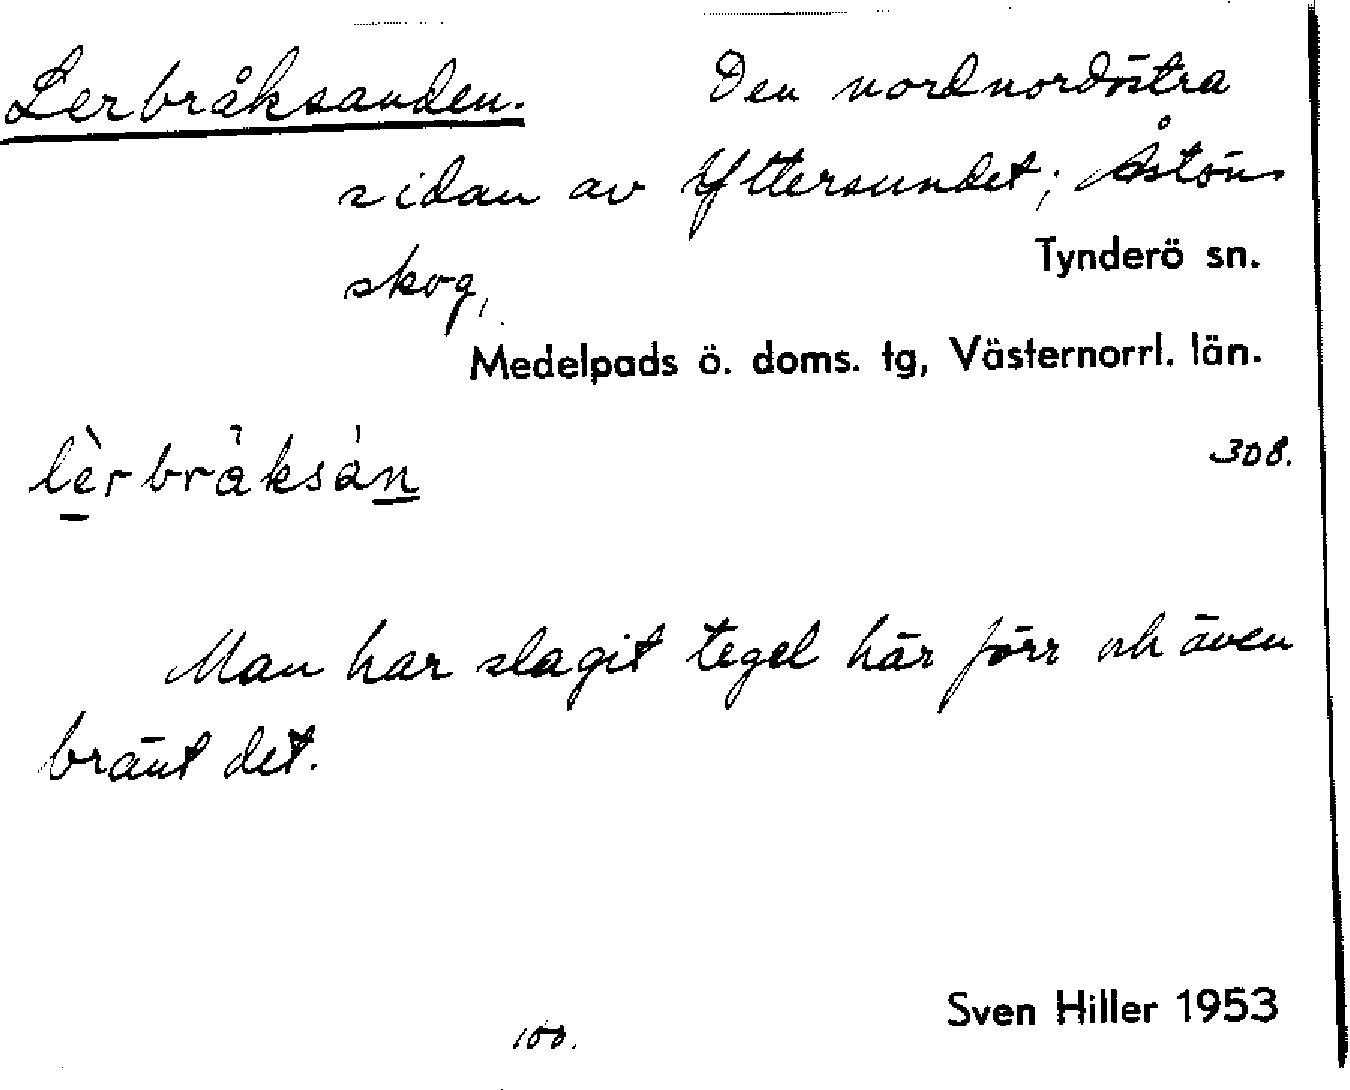 Lerbråksanden. Den nordnordöstra
sidan av Yttersundet; Åstöns
skog,
Tynderö sn.
Medelpads ö. doms. tg, Västernorrl. län.
308.
lèrbråksán
Man har slagit tegel här förr och även
bränt det.
Sven Hiller 1953
100.